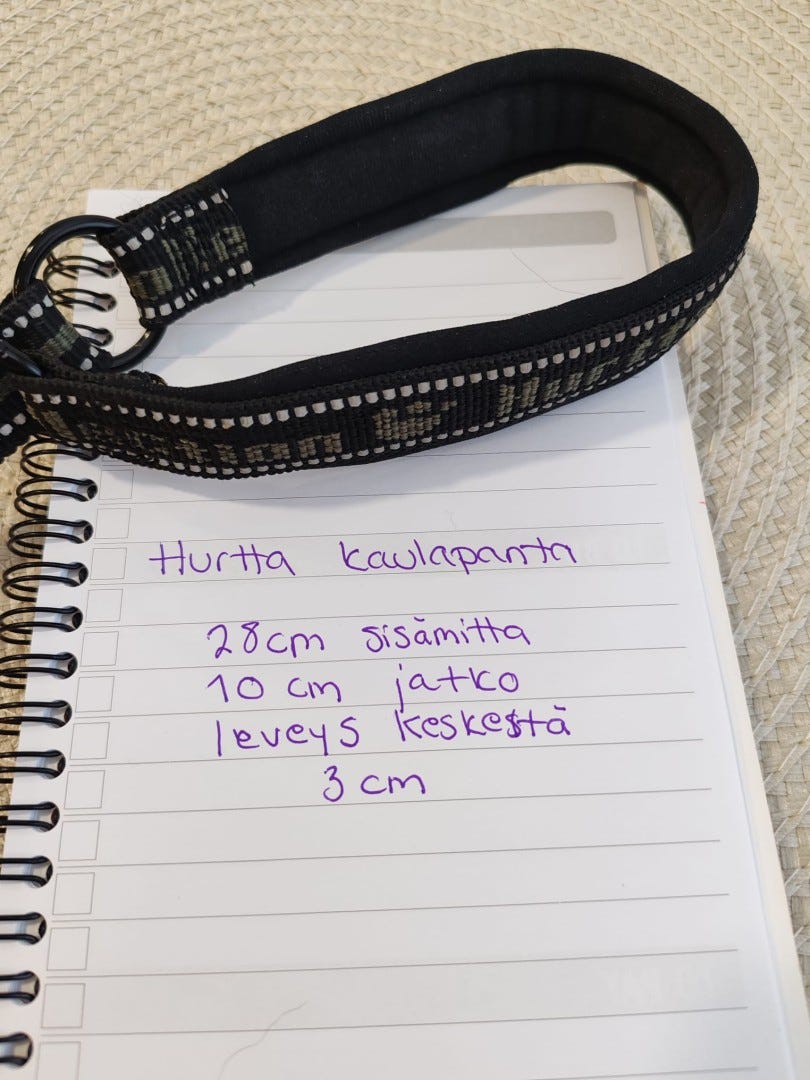 Hurtta kaulapanta
28cm sisämitta
10 cm jatko
leveys keskestä
3 cm